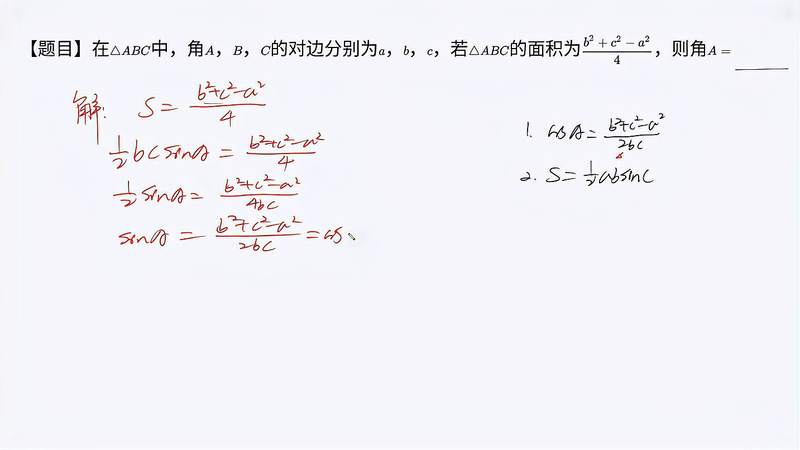 【题目】在△ABC中，角A，B，C的对边分别为a，b，c，若△ABC的面积为\frac{b²+c²-a²}{4}，则角A=______
解: S=\frac{b²+c²-a²}{4}
\frac{1}{2}bcsinA=\frac{b²+c²-a²}{4}
\frac{1}{2}sinA=\frac{b²+c²-a²}{4bc}
sinA=\frac{b²+c²-a²}{2bc}=cos
1. cosA=\frac{b²+c²-a²}{2bc}
2. S=\frac{1}{2}absinC